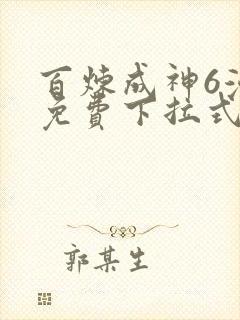 百炼成神6
免費下拉式
郭某生